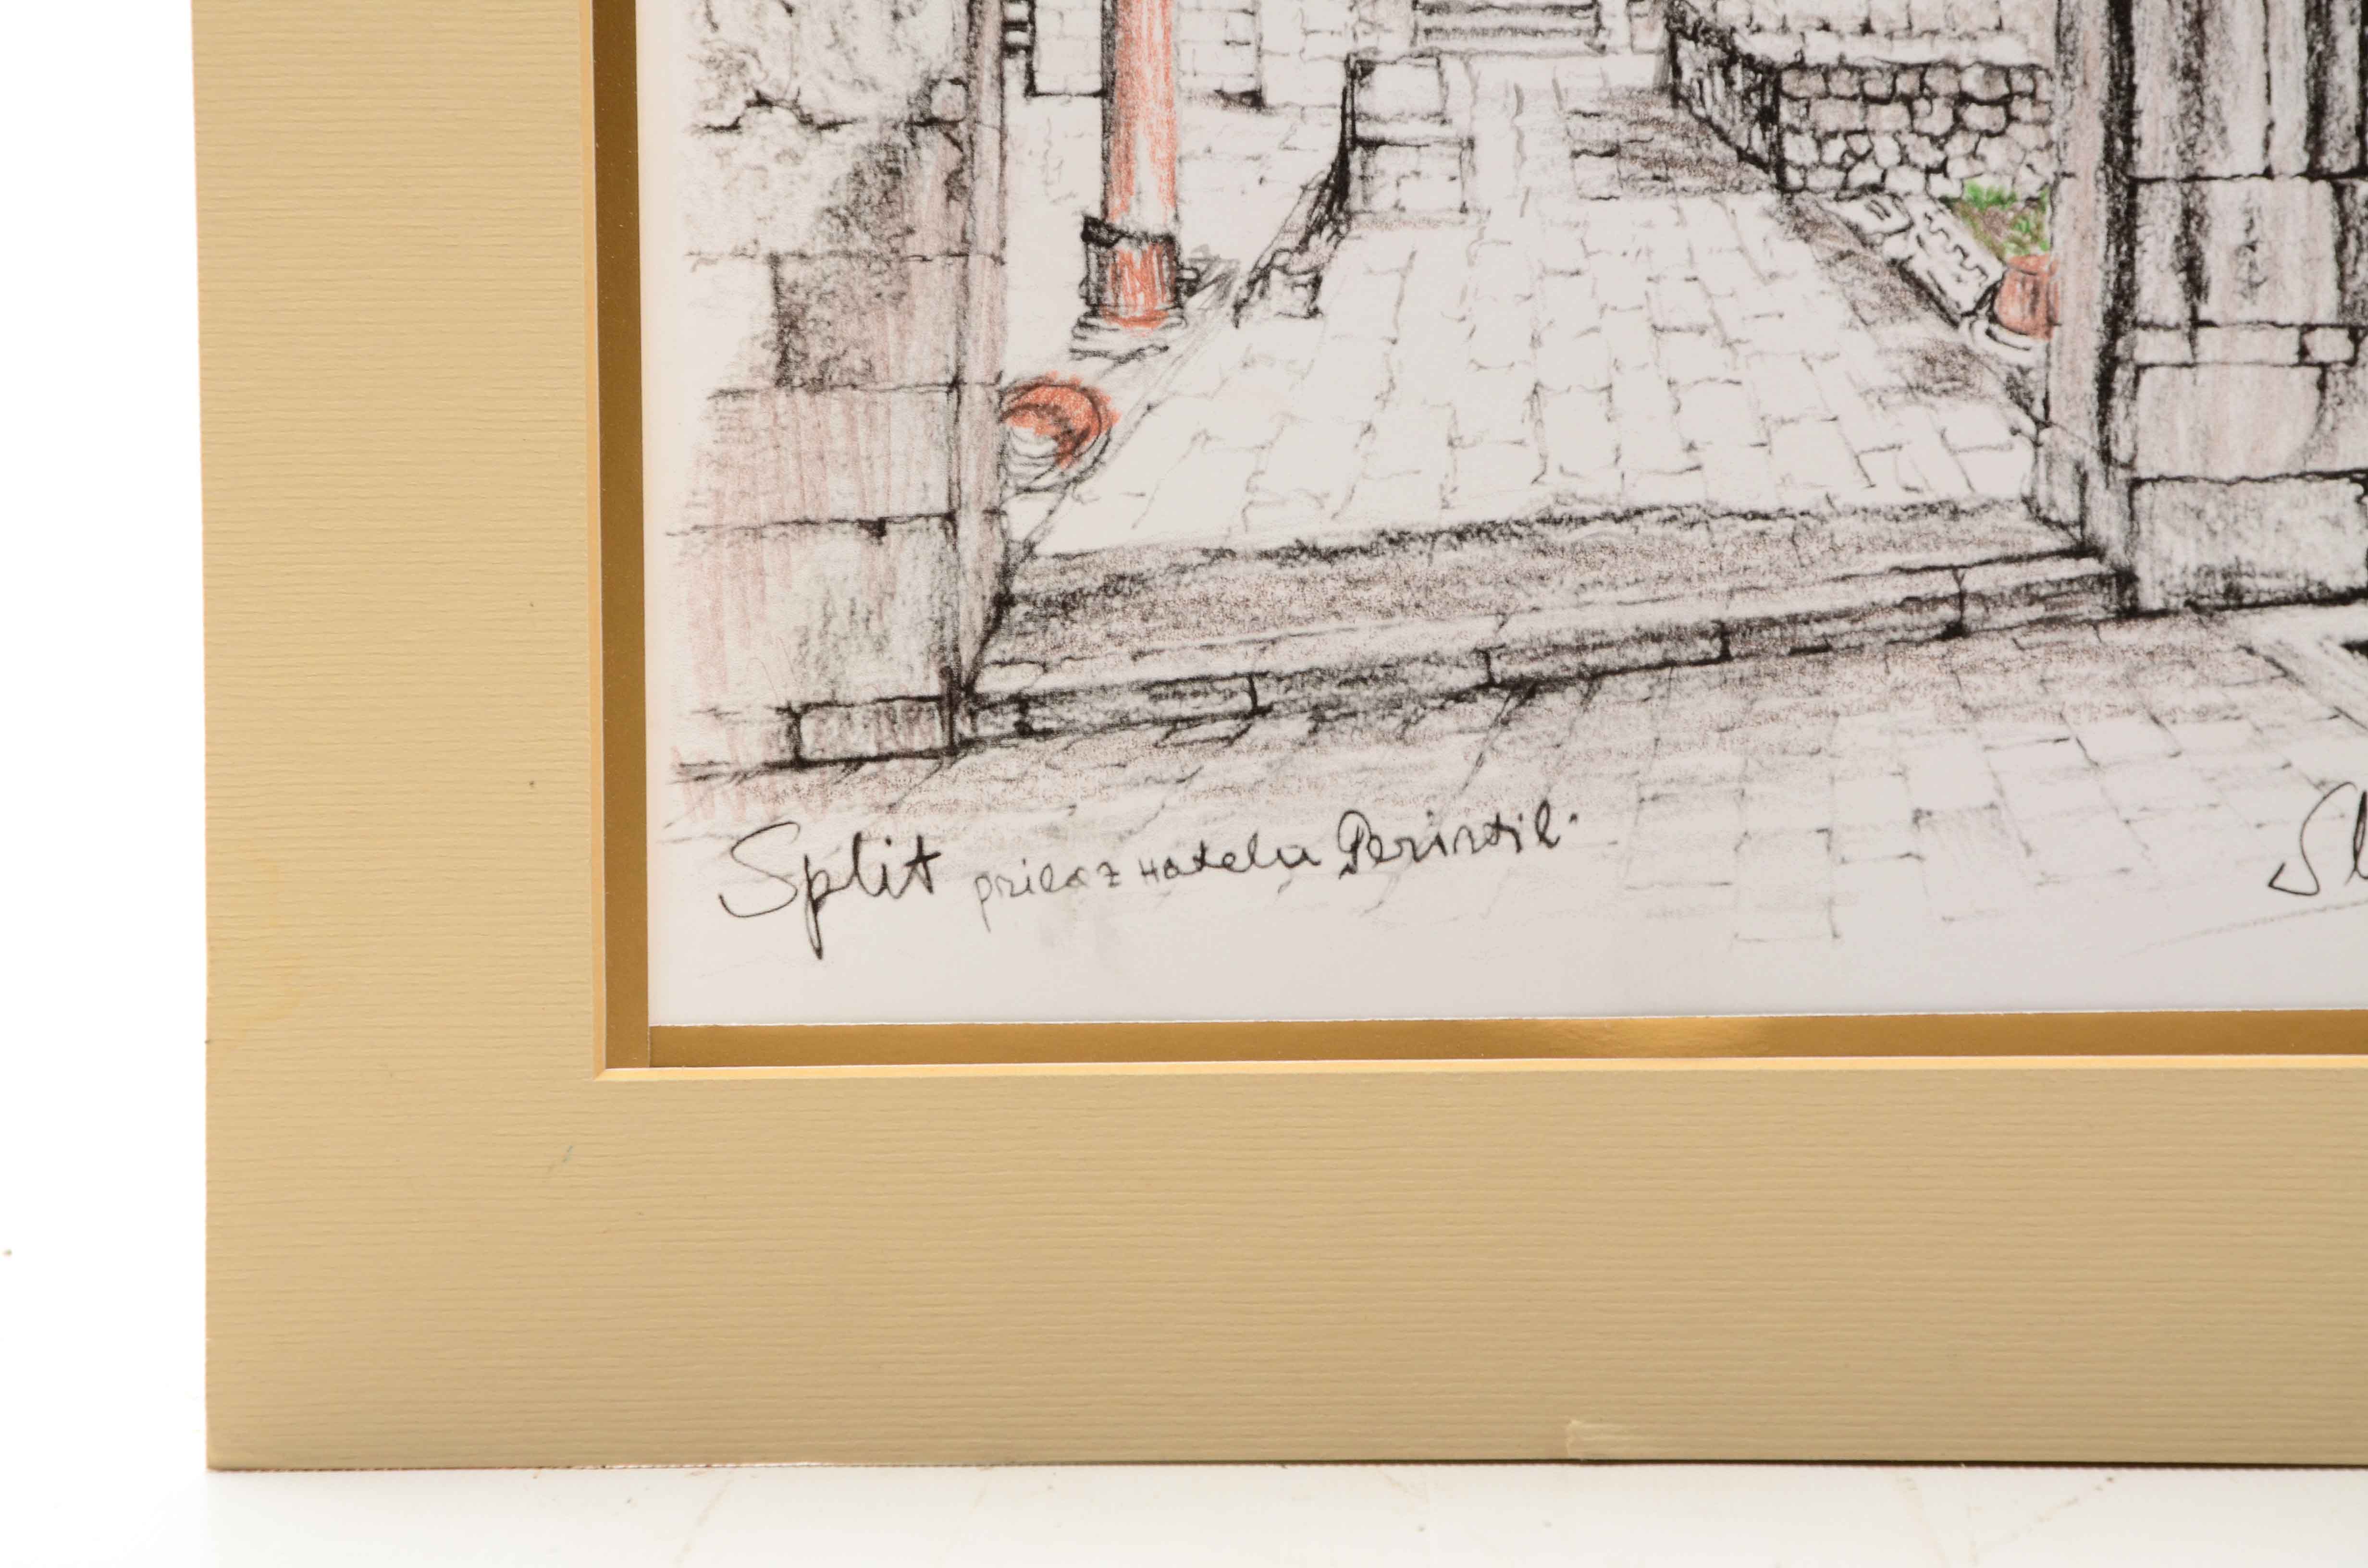 Split prilaz Hotelu Peristil.
Sl